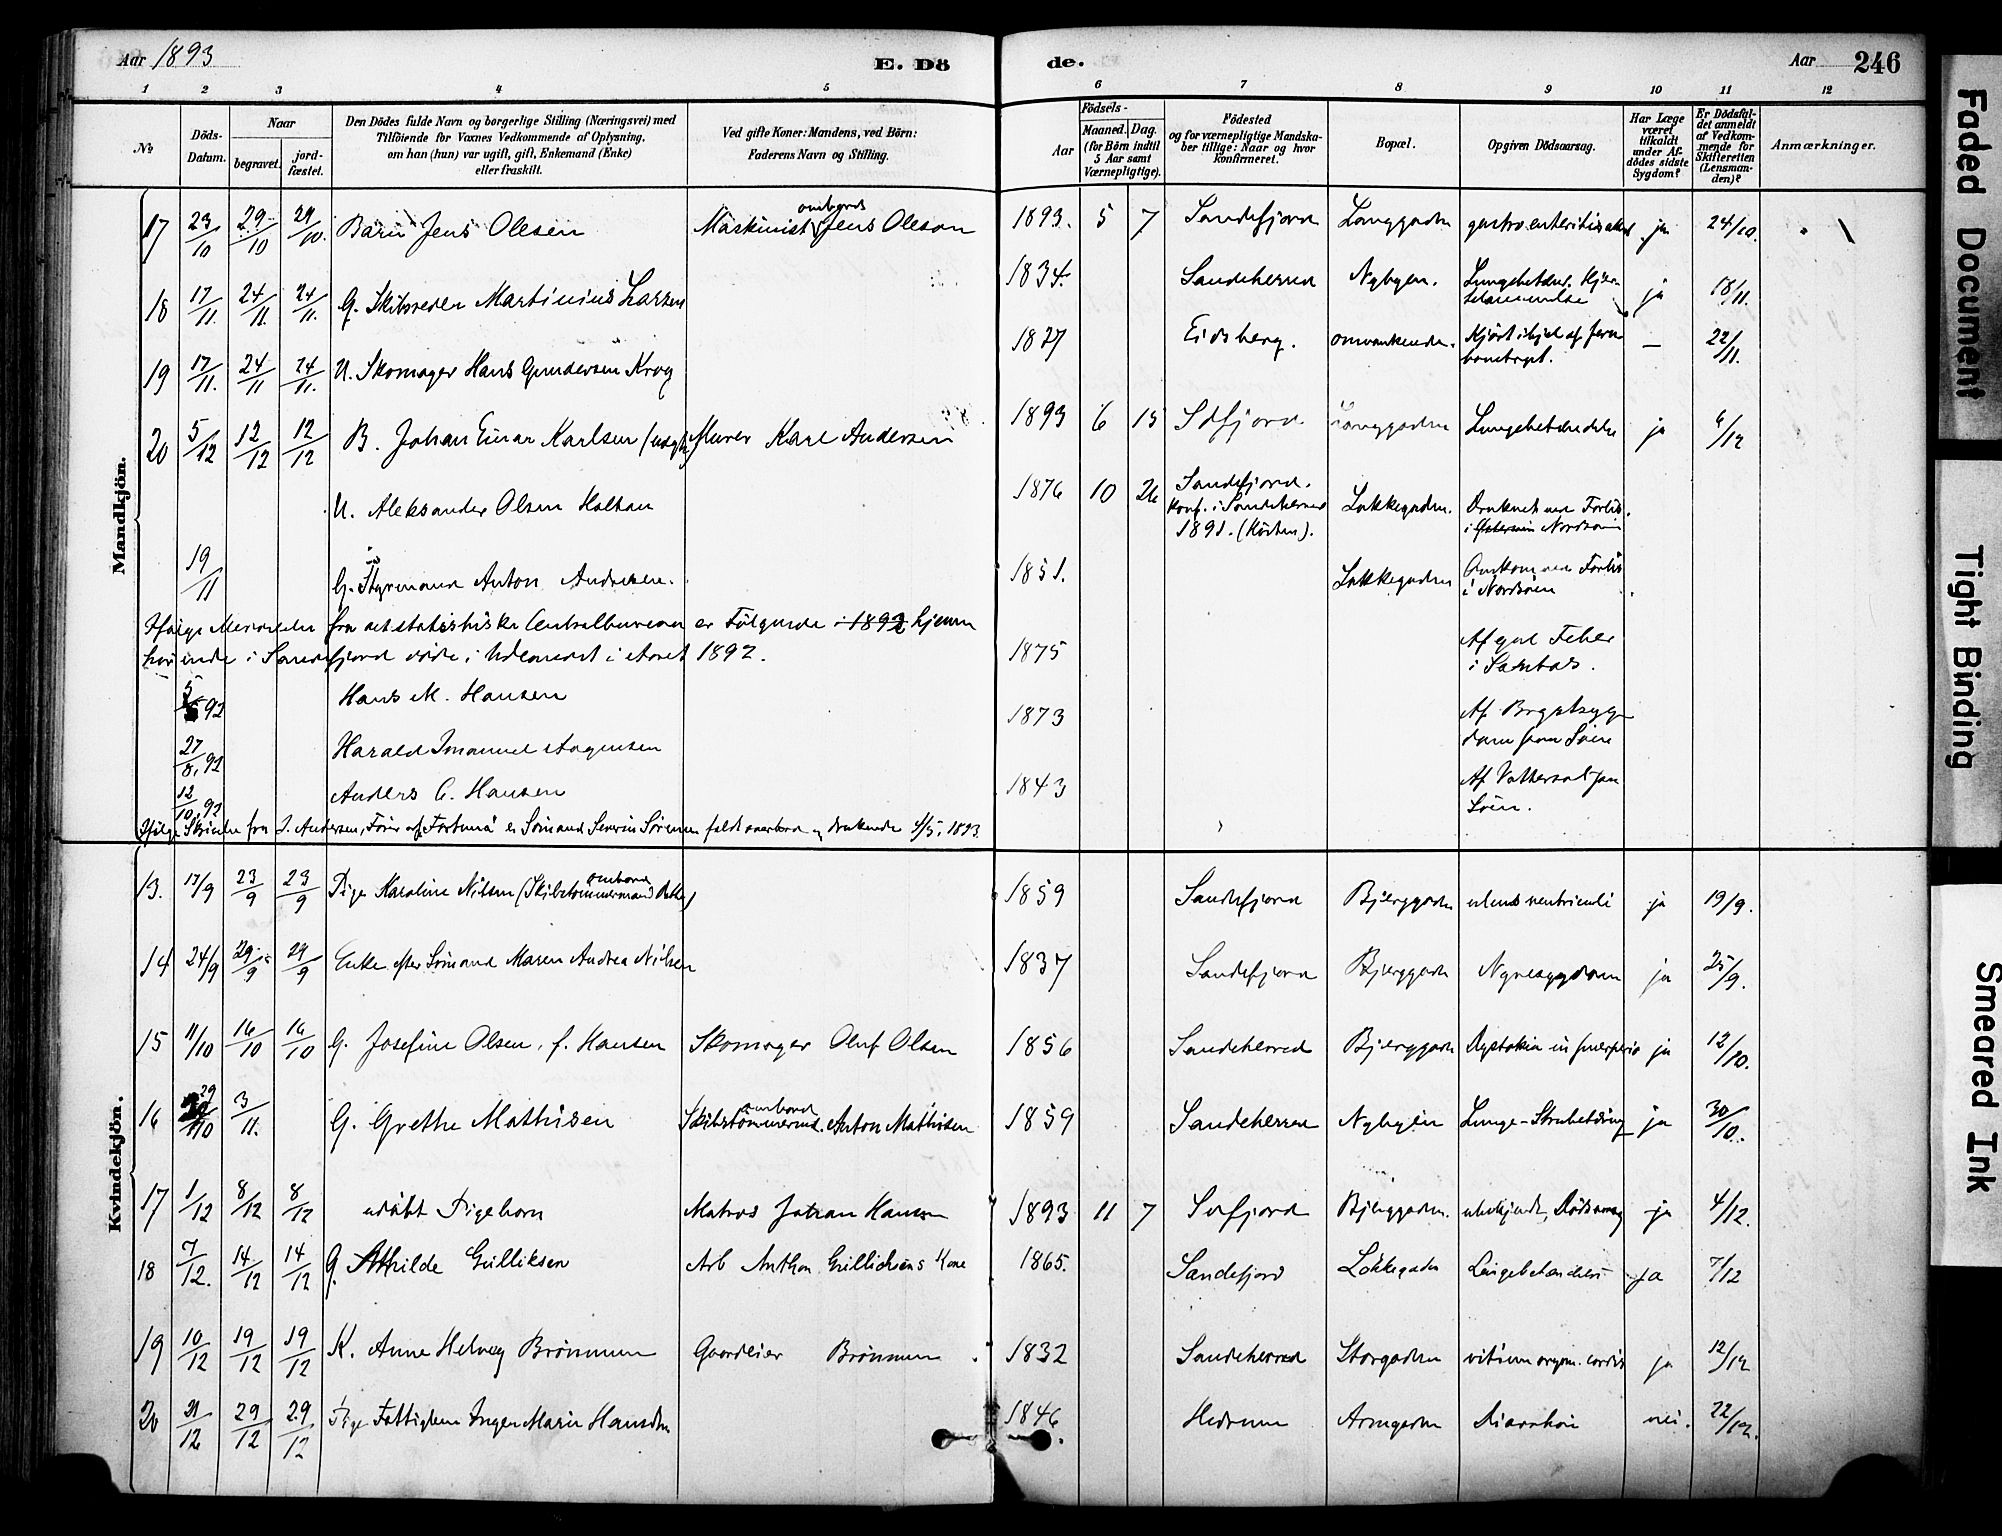 Aar 1893
E. Dö
de.
Aar 246
1 2 3 4 5 6 7 8 9 10 11 12
No
Döds-Datum.
Naar
begravet.
jord-fæstet.
Den Dödes fulde Navn og borgerlige Stilling (Næringsvei) med
Tilföiende for Voxnes Vedkommende af Oplysning.
om han (hun) var ugift, gift, Enkemand (Enke)
eller fraskilt.
Ved gifte Koner: Mandens, ved Börn:
Faderens Navn og Stilling.
Födsels-
Aar
Maaned. Dag.
(for Börn indtil
5 Aar samt
Værnepligtige).
Födested
og for værnepligtige Mandska-
ber tillige: Naar og hvor
Konfirmeret.
Bopæl.
Opgiven Dödsaarsag.
Har Læge
været
tilkaldt
under Af-
dödes sidste
Sygdom?
Er Dödsfal-
det anmeldt
af Vedkom-
mende for
Skifteretten
(Lensman-
den)?
Anmærkninger.
Mandkjön.
17 23/10 29/10 29/10. Barn Jens Olesen Maskinist ombord Jens Oleson 1893. 5 7 Sandefjord Langgaden gastroenteritis ja 24/10.
18 17/11. 24/11. 24/11. G. Skibsreder Martinius Larsen 1834. Sandeherred Nybyen. ja 18/11.
19 17/11. 24/11 24/11. U. Skomager Hans Gundersen Krog 1827 Eidsberg. omvankende. Kjørt ihjel af Jern
banetoget. — 22/11.
20 5/12 12/12 12/12 B. Johan Einar Karlsen Murer Karl Andersen 1893 6 15 Sdfjord Langgaden Lungebetændelse ja 6/12
U. Aleksander Olsen Holtan 1876 10 26 Sandefjord.
Konf. i Sandeherred
1891. Lakkegaden. Druknet ved Forlis
i Nordsøen
19/11 G. Styrmand Anton Andersen. 1851. Lakkegaden Omkom ved Forlis
i Nordsøen
Ifølge Meddelelse fra det statistiske Centralbureau er Følgende i 1892 hjemme
hørende i Sandefjord døde i Udlandet i Aaret 1892.
92 Hans M. Hansen 1875 Af gul Feber
i Santos.
27/8. 92 Harald Imanuel Aagensen 1873 Af Brystsyg
dom
12/10. 92 Anders C. Hansen 1843 Af
Ifølge Skrivelse fra J. Andersen, Fører af "Fortuna" er Sømand Severin Sørensen faldt overbord og druknede 4/5. 1893.
Kvindekjön.
13. 17/9 23/9 23/9 Pige Karoline Nilsen (Skibstømmermand ombord Datter) 1859 Sandefjord Bjerggaden ulcus ventriculi ja 19/9.
14 24/9 29/9 29/9 Enke efter Sømand Maren Andrea Nilsen 1837 Sandefjord Bjerggaden Nyresygdom ja 25/9.
15 11/10 16/10 16/10 G. Josefine Olsen, f. Hansen Skomager Oluf Olsen 1856 Sandeherred Bjerggaden Dystokia in puerperio ja 12/10.
16 29/10 3/11. G. Grethe Mathisen Skibstømmermd. ombord Anton Mathisen 1859 Sandeherred Nybyen ja 30/10.
17 1/12 8/12 8/12 udøbt Pigebarn Matros Johan Hansen 1893 11 7 Sdfjord Bjerggaden. ubekjendt Dødsaarsag ja 4/12.
18 7/12. 14/12 14/12 G. Gulliksen Arb Anthon Gullichsens Kone 1865. Sandefjord Løkkegaden Lungebetændelse ja 7/12
19 10/12 19/12 19/12 K. Anne Helvig Brønnum Gaardeier Brønnum. 1832 Sandeherred Storgaden vitium organ. cordis ja 12/12
20 21/12 29/12 29/12 Pige Fattiglem Inger Marie Hansdn 1846. Hedrum Diarrhøi nei. 22/12.
Faded Document
Tight Binding
Smeared Ink